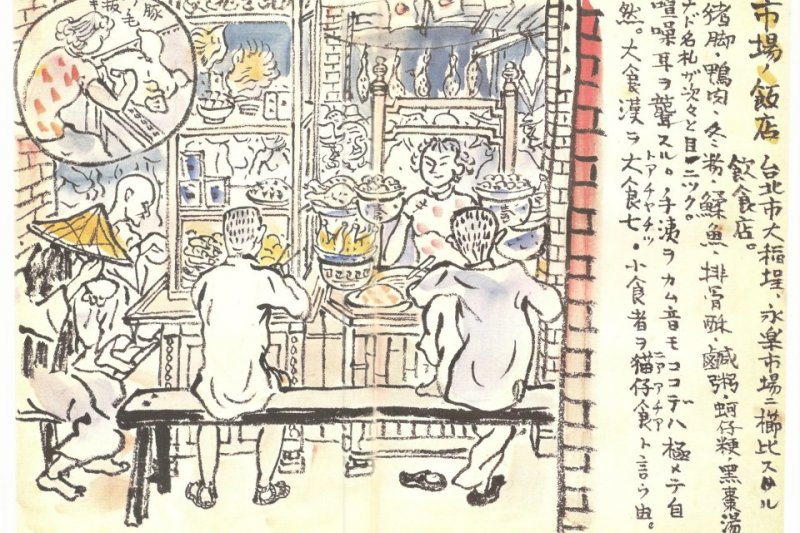 市場ノ飯店 台北市大稻埕、永楽市場ニ櫛比スル
飲食店。
猪脚・鴨肉・冬粉・魚・排骨酥・鹹粥・蚵仔粳・黑棗湯
ナド名札ガ次々と目ニツク。
喧噪耳ヲ聾スル。手洟ヲカム音モココデハ極メテ自
トアチヤチツ
然。大食漢ヲ大食七・小食者ヲ猫仔食ト言う由。
豚ノ毛拔キ